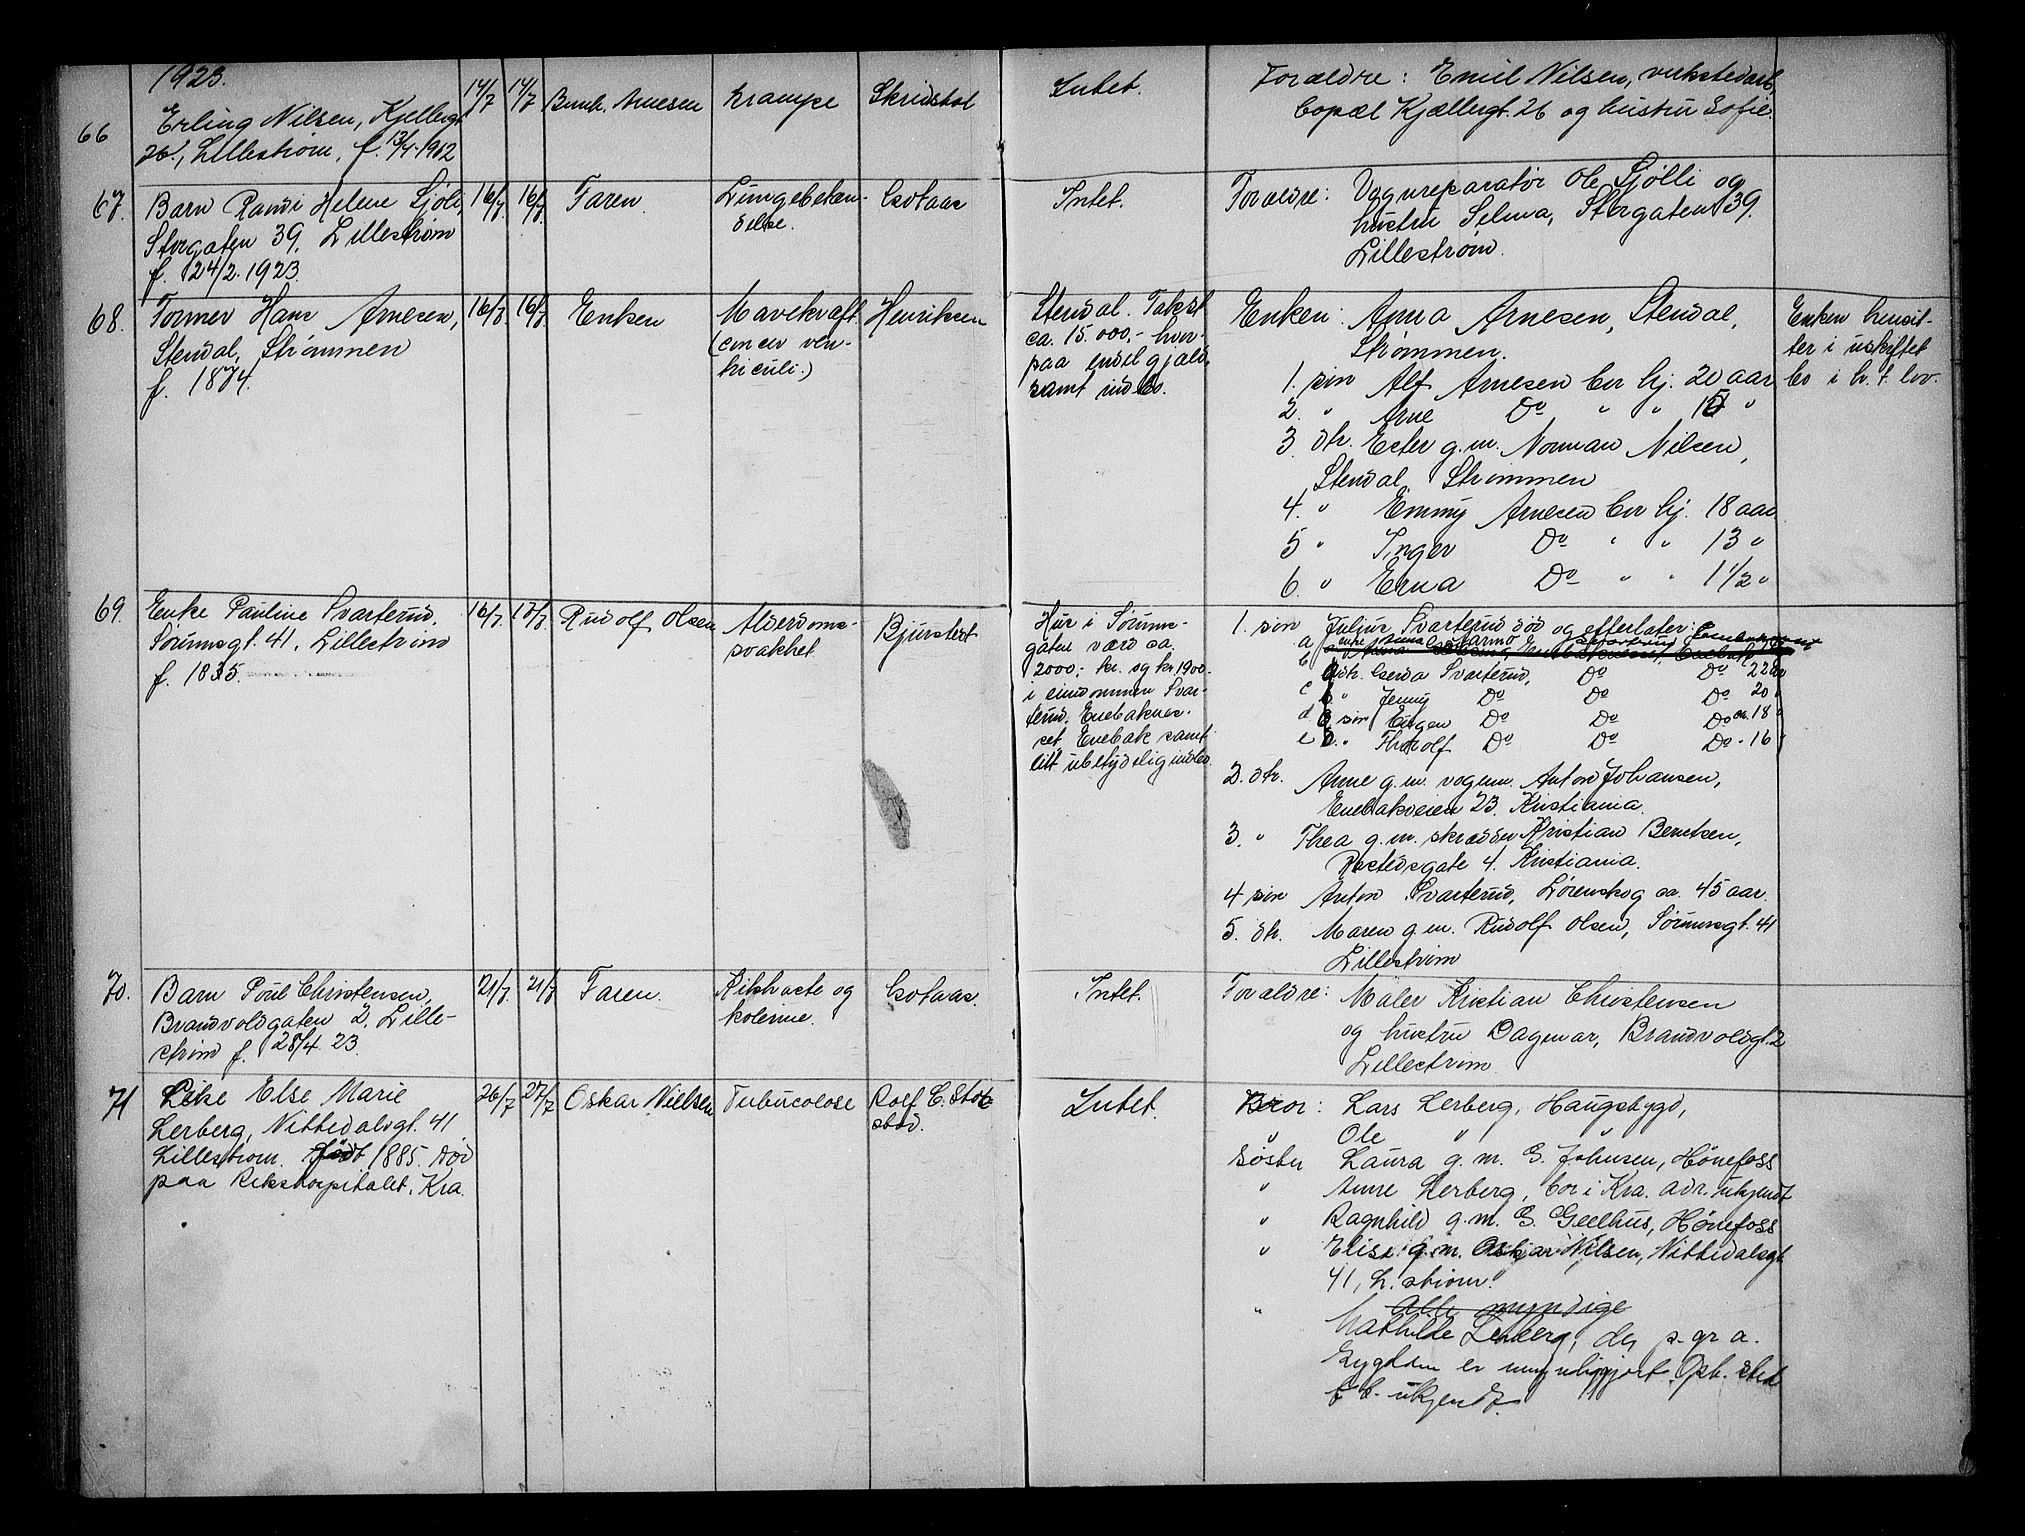 1923.
66
Erling Nilsen, Kjellergt.
26, Lillestrøm, f. 13/4-1912
14/7
14/7
Arnesen
Krampe
Skridstol
Intet.
Forældre: Emil Nilsen, verkstedarb.
bopæl Kjællergt. 26 og hustru Sofie.
67.
Barn Randi Helene Sjøli,
Storgaten 39, Lillestrøm
f. 24/2. 1923
16/7
16/7
Faren.
Lungebeten-
delse.
Isotaas
Intet.
Foræeldre: Vognreparatør Ole Sjølli og
hustru Selma, Storgaten 39.
Lillestrøm.
68.
Former Hans Arnesen,
Stendal, Strømmen
f. 1874.
16/7
16/7
Enken
Mavekræft
(cancer ven-
triculi.)
Henriksen
Stendal. Takst
ca. 15.000,- hvor-
paa endel gjæld,
samt indbo.
Enken: Anna Arnesen, Stendal,
Strømmen.
1. søn Alf Arnesen bor hj. 20 aar
2. " Arne Do " "
3. dtr. Ester g.m. Norman Nilsen,
Stendal, Strømmen
4. " Emmy Arnesen bor hj. 18 aar
5 " Inger Do " " 13 "
6. " Erna Do " " 1 1/2 "
Enken hensit-
ter i uskiftet
bo i h. t. lov.
69.
Enke Pauline Svarterud,
Sørumsgt. 41, Lillestrøm
f. 1835.
16/7
17/7
Rudolf Olsen
Alderdoms-
svakhet
Bjunstert
Hus i Sørums-
gaten værd ca.
2000,- kr. og kr. 1900.-
i eiendommen Svar-
terud, Enebaknes-
set, Enebak samt
litt ubetydelig indbo.
1. søn Julius Svarterud død og efterlater:
a
b dtr. Gerda Svarterud, Do Do 22 aar
c " Jenny Do Do Do 20 "
d søn Eugen Do Do Do ca. 18 "
e " Thorolf Do Do Do - 16 "
2. dtr. Anne g.m. vognm. Anton Johansen,
Enebakveien 23. Kristiania.
3. " Thea g.m. skrædder Kristian Berntsen,
Rostedsgate 4. Kristiania.
4 søn Anton Svarterud, Lørenskog ca. 45 aar.
5. dtr. Maren g.m. Rudolf Olsen, Sørumsgt. 41
Lillestrøm
70.
Barn Poul Christensen,
Brandvoldgaten 2, Lille-
strøm f. 28/4. 23.
21/7.
21/7
Faren.
Kikhoste og
kolerine.
Isotaas.
Intet.
Foræeldre: Maler Kristian Christensen
og hustru Dagmar, Brandvoldgt. 2
Lillestrøm.
71
Pike Else Marie
Lerberg, Nittedalsgt. 41
Lillestrøm. født 1885. død
paa Rikshospitalet, Kra.
26/7
27/7
Oskar Nielsen
Tubucolose
Rolf C.
Intet.
Bror: Lars Lerberg, Haugsbygd,
" Ole " "
Søster Laura g.m. G. Johnsen, Hönefoss
" Anne Lerberg, bor i Kra. adr. ukjendt
" Ragnhild g.m. G. Geelhus, Hönefoss
" Elise g.m. Oskar Nilsen, Nittedalsgt.
41, L. strøm.
Alle myndige
" Mathilde Lerberg, der p. gr. a.
sygdom er umyndiggjort. Oph. sted
ukjendt.